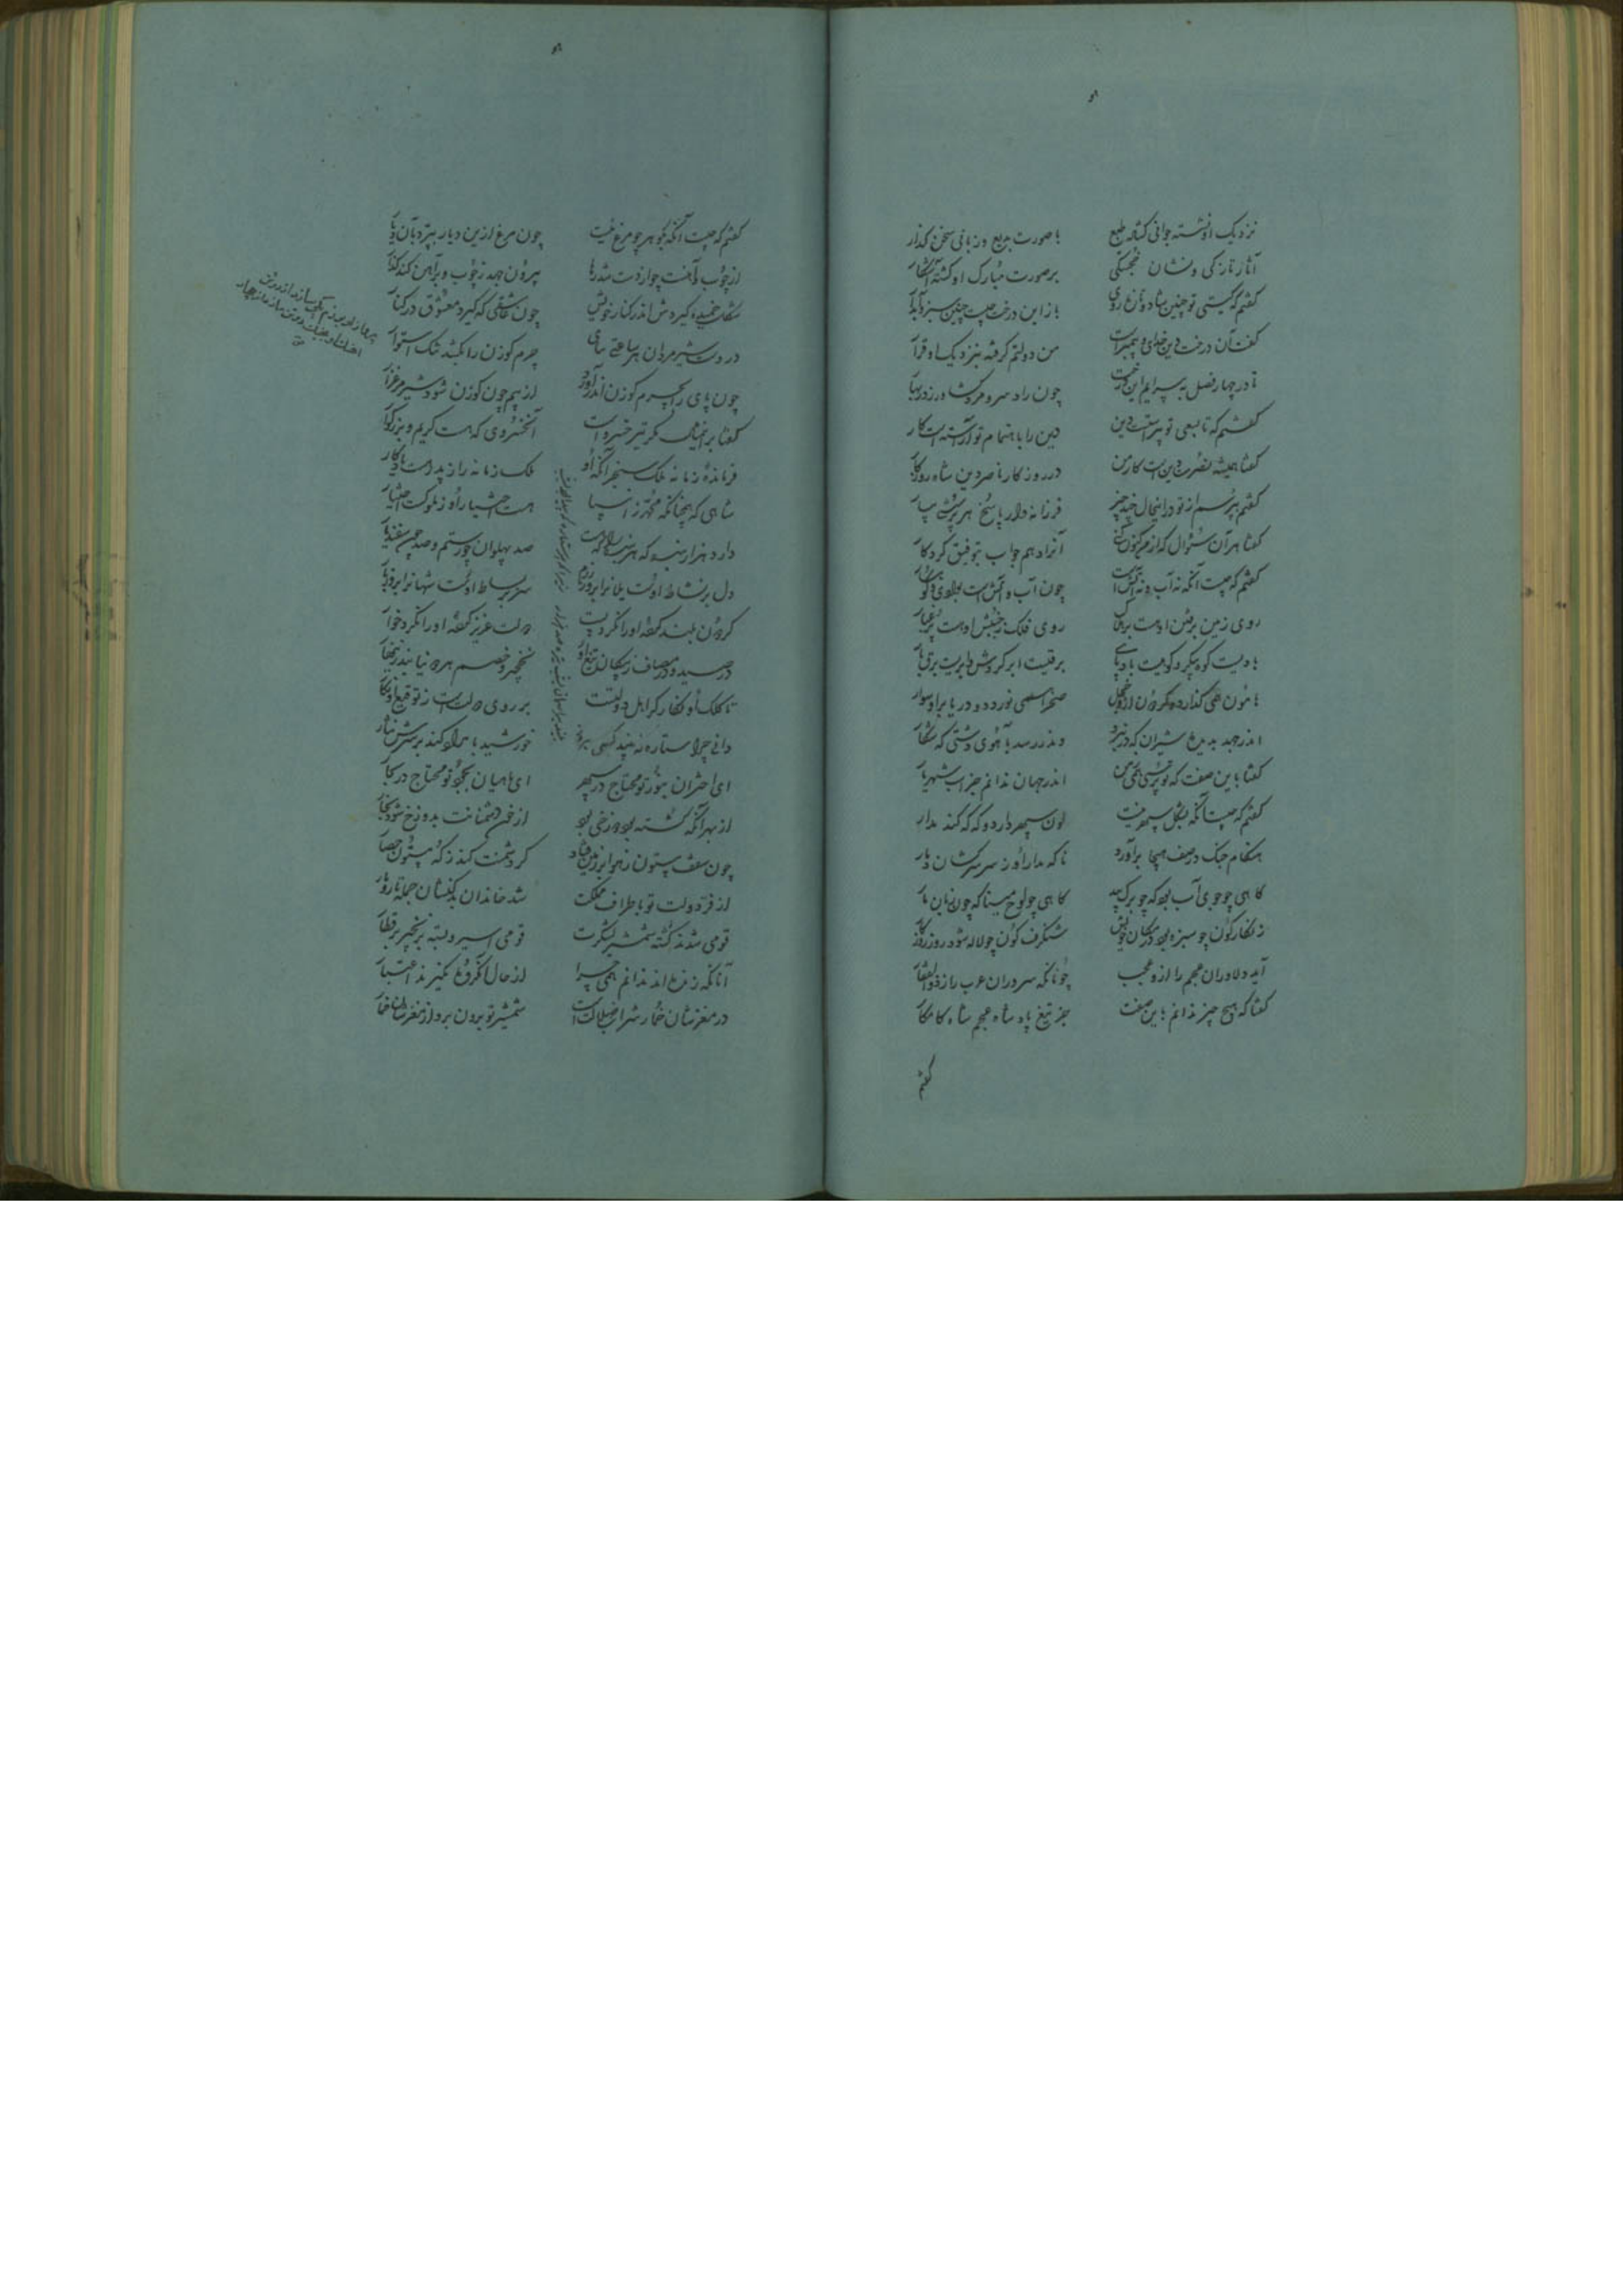 نزدیک او نشسته جوانی کشاده طبع
با صورت بدیع و زبانی سخن گذار
آثار تازگی و نشان خجستگی
بر صورت مبارک او گشته آشکار
گفتم که کیستی تو چنین شاد و تازه روی
باز این درخت چیست چنین سبز و آبدار
گفت آن درخت دین خدای و پیمبر است
من دولتم گرفته بنزدیک او قرار
تا در چهار فصل به پیرایم این درخت
چون راد سرو مرد کشاورز در بهار
گفتم که تا بسعی تو پیراسته است دین
دین را باهتمام تو آراسته است کار
گفتا همیشه نصرت دین است کار من
در روزگار ناصر دین شاه روزگار
گفتم بپرسم از تو در اینحال چند چیز
فرزانه وار پاسخ هر پرسشی بیار
گفتا هر آن سئوال که از من کنون کنی
آنرا دهم جواب بتوفیق کردگار
گفتم که چیست آنکه نه آب و نه آتش است
چون آب و آتش است
روی زمین برفتن او هست
روی فلک ز جنبش او هست پر غبار
بادیست کوه پیکر و کوهیست بادپای
برقیست ابر گردش و ابریست برق بار
هامون همی گذارد و گردون ازو خجل
صحرا همی نوردد و دریا برو سوار
اندر جهد بدیده شیران که نبرد
و ندر رسد بآهوی دشتی که شکار
گفتا باین صفت که تو پرسی همی ز من
اندر جهان ندانم جز اسب شهریار
گفتم که چیست آنکه بشکل سپهر نیست
لون سپهر دارد و که که کند مدار
هنگام جنگ در صف هیجا برآورد
ناگه مدار او ز سر سرکشان دمار
گاهی چو جوی آب بود گه چو برگ بید
گاهی چو لوح مینا گه چون زبان مار
زنگار گون چو سبزه بود در مکان خویش
شنگرف گون چو لاله شود روز کارزار
آید دلاوران عجم را ازو عجب
چونانکه سروران عرب را ز ذوالفقار
گفتا که هیچ چیز ندانم باین صفت
جز تیغ پادشاه عجم شاه کامکار
گفتم
گفتم که چیست آنکه بگوهر چو مرغ نیست
چون مرغ ازین دیار بپرد بآن دیار
از چوب و آهنست چو از دست شد رها
بیرون جهد ز چوب و بر آهن کند گذار
شکل خمیده گیردش اندر کنار خویش
چون عاشقی که گیرد معشوق در کنار
در دست شیر مردان هر ساعتی
چرم گوزن را بکشد تنگ استوار
چون پای را بچرم گوزن اندر آورد
از بیم چون گوزن شود شیر مرغزار
گفتا بر این مگر تیر خسرو است
آنخسروی که هست کریم و بزرگوار
فرمانده زمانه ملک سنجر آنکه او
ملک زمانه راز پدر هست یادگار
شاهی که همچنانکه محمد ز انبیا
هست اختیار او ز ملوک است اختیار
دارد هزار بنده که هر بنده
صد پهلوان چو رستم و صد چون سفندیار
دل بر نشاط اوست یلانرا بروز رزم
سر بر بساط اوست شهانرا بروز بار
گردون بلند کرده او را نکرد پست
دولت عزیز کرده او را نکرد خوار
در صید و در مصاف ز پیکان و تیغ او
نخچیر و خصم هر دو نیابند زینهار
تا کلک او نگار گر اهل دولتست
بر روی دولت است ز توقیع او نگار
دانی چرا ستاره نه بیند کسی بروز
خورشید بامداد کند بر سرش نثار
ای اختران بنور تو محتاج در سپهر
ای ماهیان بجود تو محتاج در بحار
از بهر آنکه کشته بود دوزخی بود
از خون دشمنانت بدوزخ شود بخار
چون سقف بیستون ز هوا بر زمین فتاد
گر دشمنت کند ز که بیستون حصار
از فر دولت تو باطراف مملکت
شد خاندان بدکنشان جمله تار و مار
قومی شدند کشته شمشیر لشکرت
قومی اسیر و بسته بزنجیر بر قطار
آنانکه زنده اند ندانم همی چرا
از حال آنگروه نگیرند اعتبار
در مغزشان خمار شراب ضلالت است
شمشیر تو برون برد از مغزشان خمار